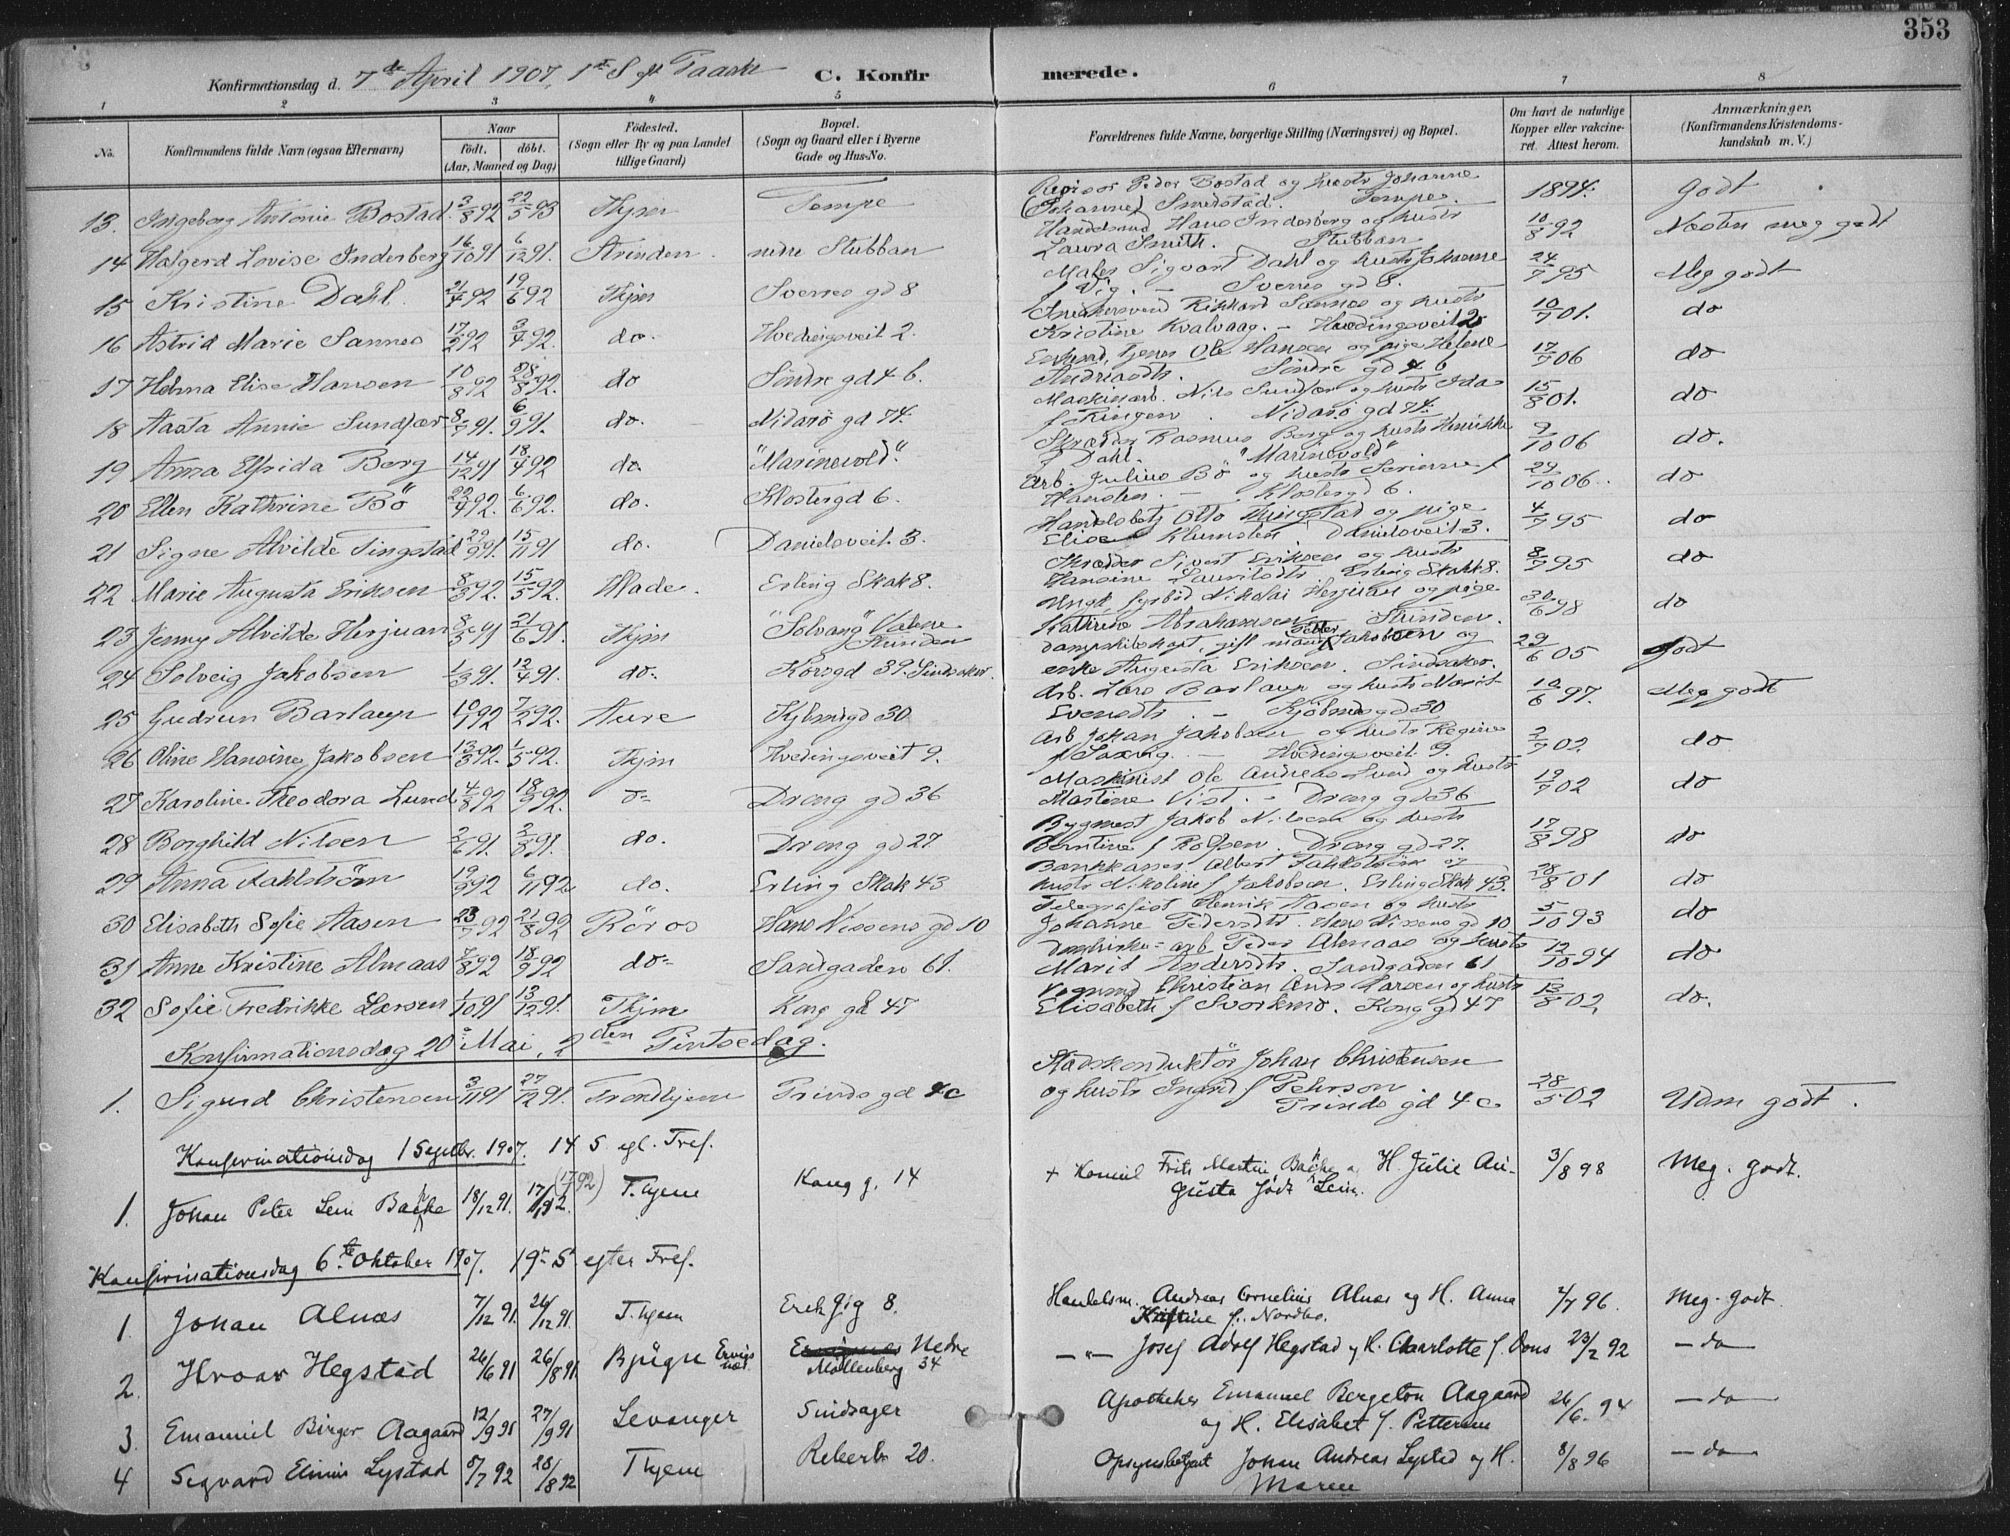 353
Konfirmationsdag d. 7de April 1907, 1ste S. eft. Paaske C. Konfirmerede.
1 2 3 4 5 6 7 8
No. Konfirmandens fulde Navn (ogsaa Efternavn) Naar födt. döbt. (Aar, Maaned og Dag) Födested. (Sogn eller By og paa Landet tillige Gaard) Bopæl. (Sogn og Gaard eller i Byerne Gade og Hus-No. Forældrenes fulde Navne, borgerlige Stilling (Næringsvei) og Bopæl. Om havt de naturlige Kopper eller vakcineret. Attest herom. Anmærkninger, (Konfirmandens Kristendomskundskab m. V.)
13. Ingeborg Antonie Bostad. 3/8 92 22/5 93 Thjm Tempe Peder Bostad og hustr Johanne (Johanne) Smedstad. Tempe. 1894. Godt
14 Halgerd Lovise Inderberg 16/10 91 6/12 91. Strinden. nedre Stubban Handelsmd Hans Inderberg og hustr Laura Smith. Stubban 10/8 92 Næsten meg godt
15 Kristine Dahl. 21/4 92 19/6 92 Thjm Sverres gd 8 Maler Sigvart Dahl og hustr Johanne f Vig. – Sverres gd 8. 24/7 95 Meg godt
16 Astrid Marie Sannes 17/2 92 3/4 92. do. Hvedingsveit 2. Snekkersvend Rikhard Sannes og hustr Kristine Kvalvaag. – Hvedingsveit 2 10/7 01. do
17 Helma Elise Hansen 10/8 92 28/8 92. do Söndre gd 4 b. Enkemd, tjener Ole Hansen og pige Helene Andreasdtr. Söndre gd 4 b 17/7 06 do
18 Aasta Annie Sundfær 8/7 91. 6/9 91. do. Nidarö gd 74. Maskinarb. Nils Sundfær og hustr Ida f Ringen. Nidarö gd 74. 15/8 01. do
19 Anna Elfrida Berg 14/12 91 18/4 92 do. "Marinevold". Skrædder Rasmus Berg og hustr Henrikke f Dahl. "Marinevold" 9/10 06 do.
20 Ellen Kathrine Bö 22/4 92. 6/6 92. do. Klostergd 6. Arb. Julius Bö og hustr f Hansten. – Klostergd 6. 24/10 06. do
21 Signe Alvilde Tingstad 29/9 91. 15/11 91 do. Danielsveit 3. Handelsbetj Otto Tingstad og pige Elise Klumsten. Danielsveit 3. 4/7 95 do
22 Marie Augusta Eriksen 8/3 92. 15/5 92. Hlade. Erling Skak 8. Skrædder Sivert Eriksen og hustr Hansine Lauritsdtr. Erling Skakk 8. 8/7 95 do
23 Jenny Alvilde Herjuan 8/5 91 21/6 91. Thjm "Solvang" Strinden Ungk, fyrbød Nikolai Herjuan og pige Kathrine Abrahamsen Strinden. 30/6 98 do
24 Solveig Jakobsen 1/3 91. 12/4 91. do. Korsgd 39. Sindsaker. Dampskibskapt, gift mand Peder Jakobsen og enke Augusta Eriksen. Sindsaker. 29/6 05 godt
25 Gudrun Barlaup 10/1 92 7/2 92. Aure Kjbmdgd 30 Arb. Lars Barlaup og hustr Marit Evensdtr. – Kjöbmdsgd 30 10/6 97. Meg godt
26 Oline Hansine Jakobsen 13/3 92. 1/5 92. Thjm Hvedingsveit 9. Arb Johan Jakobsen og hustr Regine f Saxvig. – Hvedingsveit 9. 2/7 02 do
27 Karoline Theodora Lund 4/8 92 18/9 92. do Drong gd 36 Maskinist Ole Andreas Lund og hustr Martine Vist. – Drong gd 36 19/7 02 do
28 Borghild Nilsen 2/6 91. 2/8 91. do. Drong gd 27 Bygmest Jakob Nilsen og hustr Berntine f Rofsen. Drong gd 27. 17/8 98 do
29 Anna Fahlström 19/9 92 6/11 92 do. Erling Skak 43 Bankkasser Albert Fahlström og hustr Nikoline f Jakobsen. Erling Skak 43. 28/8 01 do
30 Elisabeth Sofie Aasen 23/7 92 21/8 92 Röros Hans Nissens gd 10 Telegrafist Henrik Aasen og hustr Johanne Pedersdtr. Hans Nissens gd 10 5/10 93 do
31 Anne Kristine Almaas 7/8 92 18/9 92 do Sandgaden 61. arb. Peder Almaas og hustr Marit Andersdtr. Sandgaden 61 12/10 94 do
32 Sofie Fredrikke Larsen 1/10 91 13/12 91. Thjm Kong gd 47 Vognmd Christian Ands Larsen og hustr Elisabeth f Svorkmo. Kong gd 47 13/8 02 do.
Konfirmationsdag 20 Mai, 2den Pintsedag.
1. Sigurd Christensen 3/11 91 27/12 91. Trondhjem Prinds gd 4c Stadskonduktör Johan Christensen og hustr Ingrid f Pehrson Prinds gd 4c 28/5 02 Udm godt.
Konfirmationsdag 1 Septbr. 1907. 14 S. egl. Tref.
1. Johan Peter Lein Backe 18/12 91. 17/1 92. (17/7 92) T.hjem Kong g. 14 + Komiel Frits Martin Backe og H. Julie Augusta födt Lein. 3/8 98 Meg. godt.
Konfirmationsdag 6te Oktober 1907. 19de S. efter Tref.
1. Johan Alnæs 7/12 91. 26/12 91. T.hjem Erik Jg 8. Handelsm. Andreas Cornelius Alnæs og H. Anna Kristine f. Nordbo. 4/7 96. Meg. godt.
2. Hroar Hegstad 26/6 91 26/8 91. Bjugn Nedre Möllenberg 34 —"— Josef Adolf Hegstad og H. Charlotte f. Dons 23/2 92 — do —
3. Emanuel Birger Aagaard 12/9 91 27/9 91 Levanger Sindsager Apotheker Emanuel Bergeton Aagaard og H. Elisabet f. Pettersen 26/6. 94 — do —
4 Sigvard Elinius Lystad 8/7 92 28/8 92 T.hjem Reberb. 20. Opsynsbetjent Johan Andreas Lystad og H. Maren 8/8 96 — do —